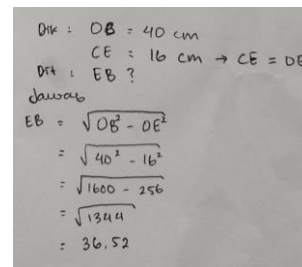 Dik : OB = 40 cm
CE = 16 cm → CE = OE
Dit : EB ?
Jawab
EB = √OB² - OE²
= √40² - 16²
= √1600 - 256
= √1344
= 36,52